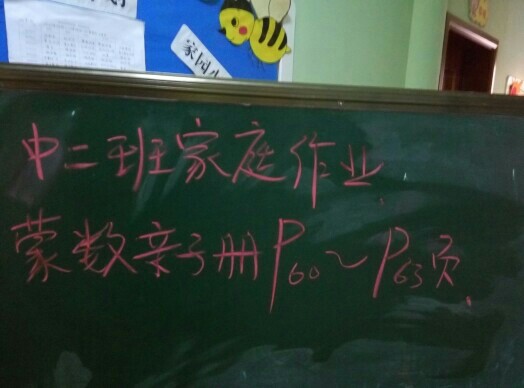 家园
中二班家庭作业
蒙数亲子册P60～P63页